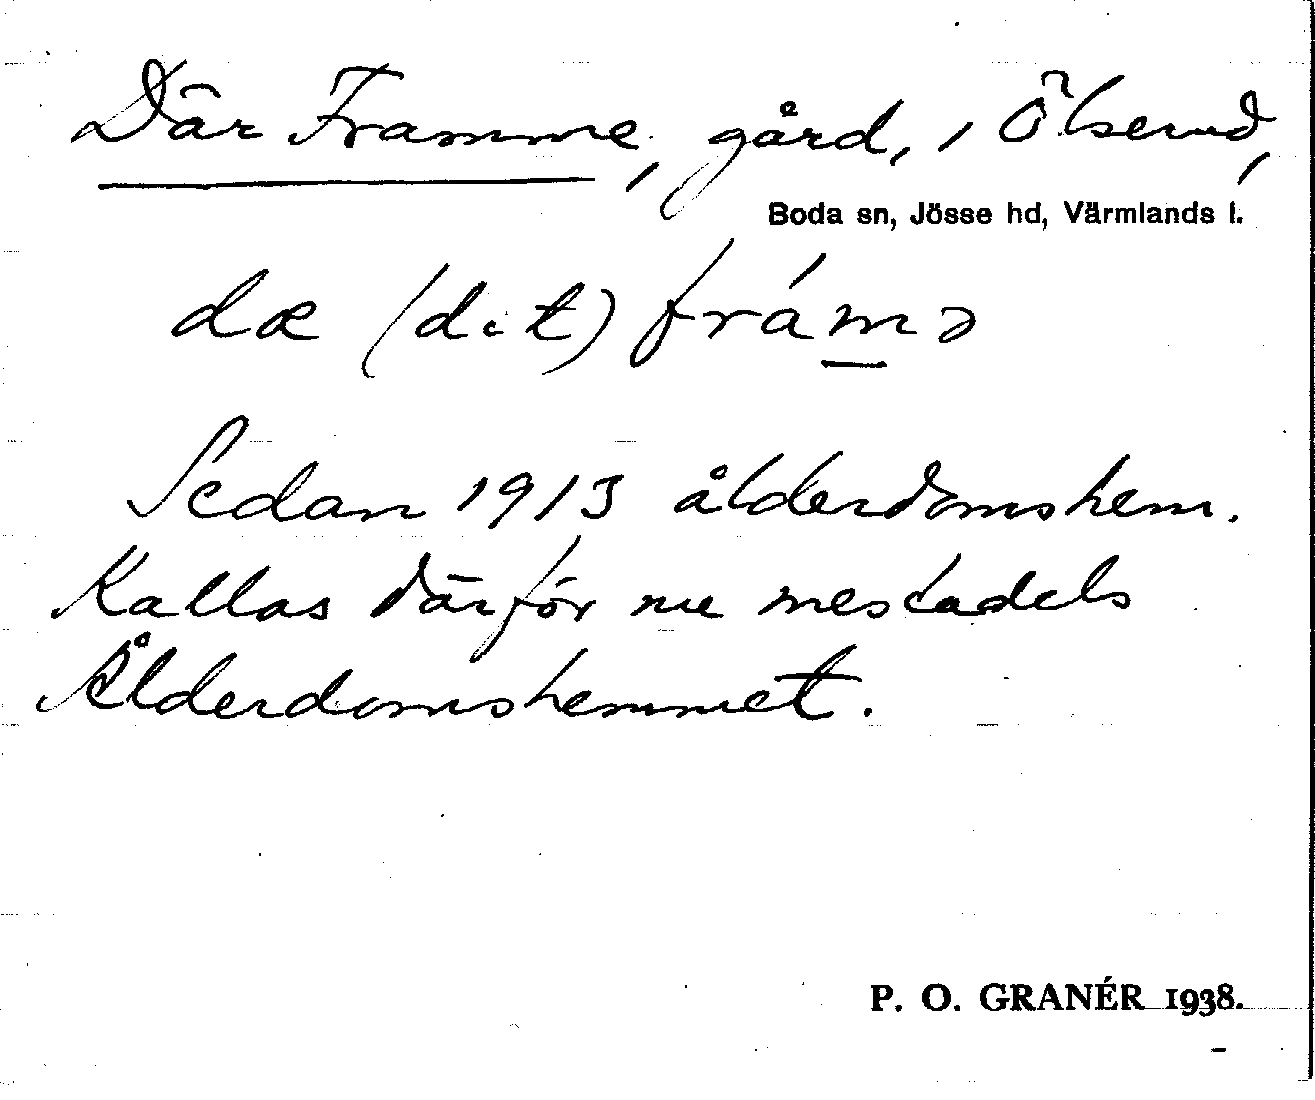 Där Framme, gård, i Ölserud,
Boda sn, Jösse hd, Värmlands l.
dæ (d.t) frámə
Sedan 1913 ålderdomshem.
Kallas därför nu mestadels
Ålderdomshemmet.
P. O. GRANÉR 1938.